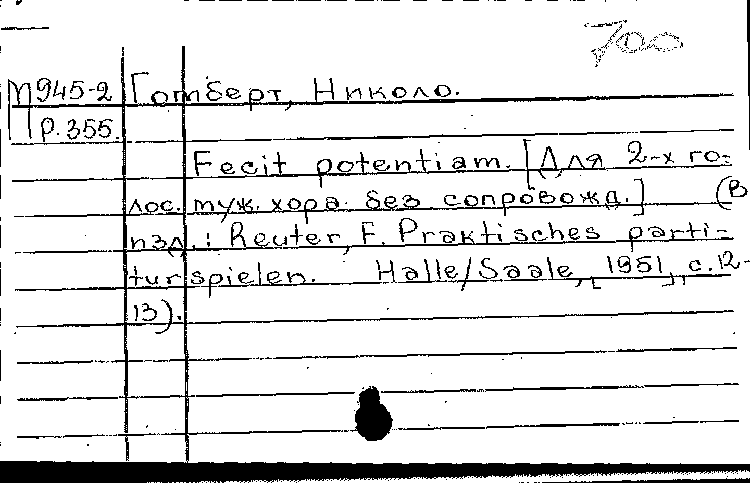 700
П945-2 Готберт, Николо.
р.355.
Fecit potentiam. [Для 2-х го=
лос. муж. хора без сопровожд.] (В
изд.: Reuter, F. Praktisches parti=
turspielen. Halle/Saale, [1951], с.12-
13).